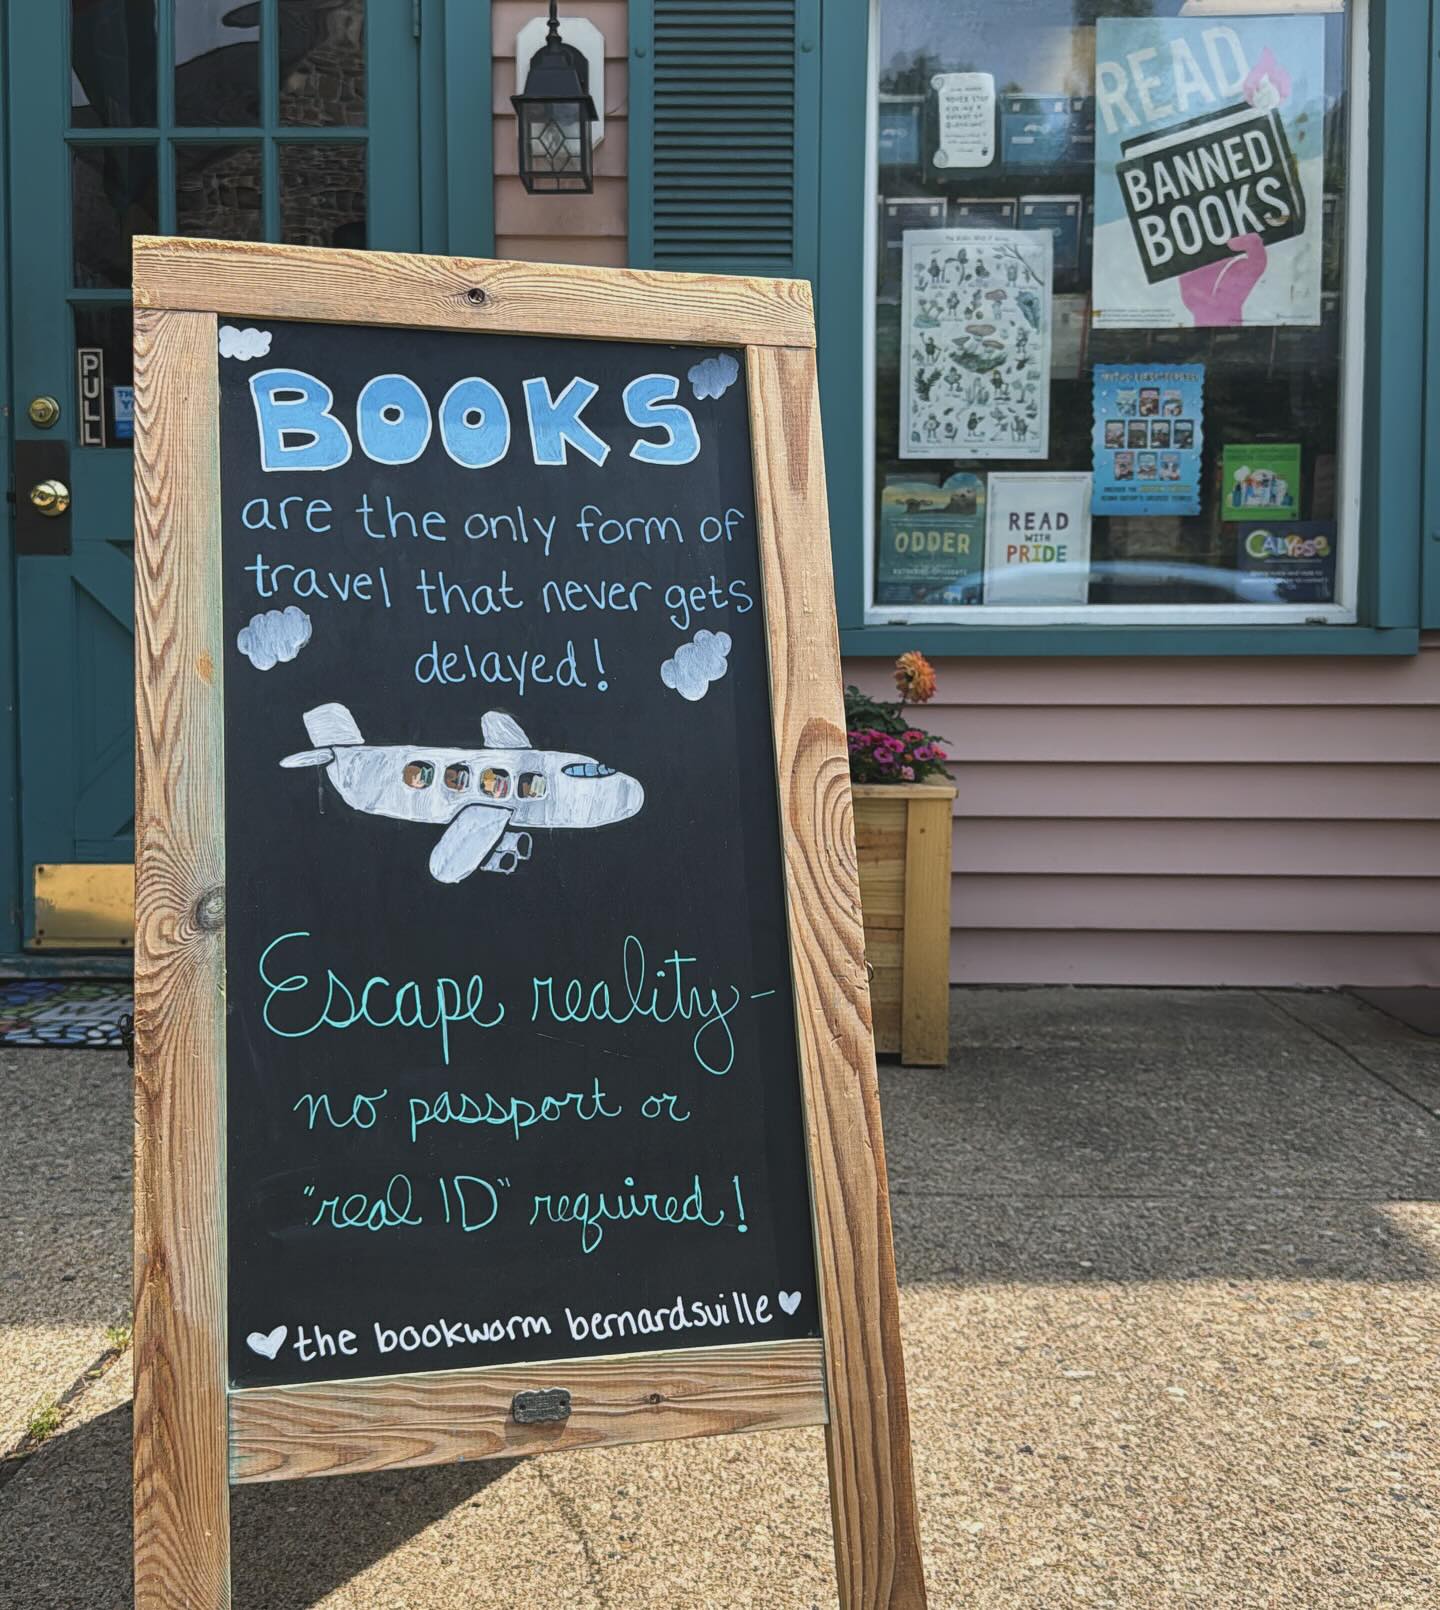 BOOKS
are the only form of
travel that never gets
delayed!
Escape reality-
no passport or
"real ID" required!
the bookworm bernardsville
PULL
READ
BANNED
BOOKS
ODDER
READ
WITH
PRIDE
CALYPSO